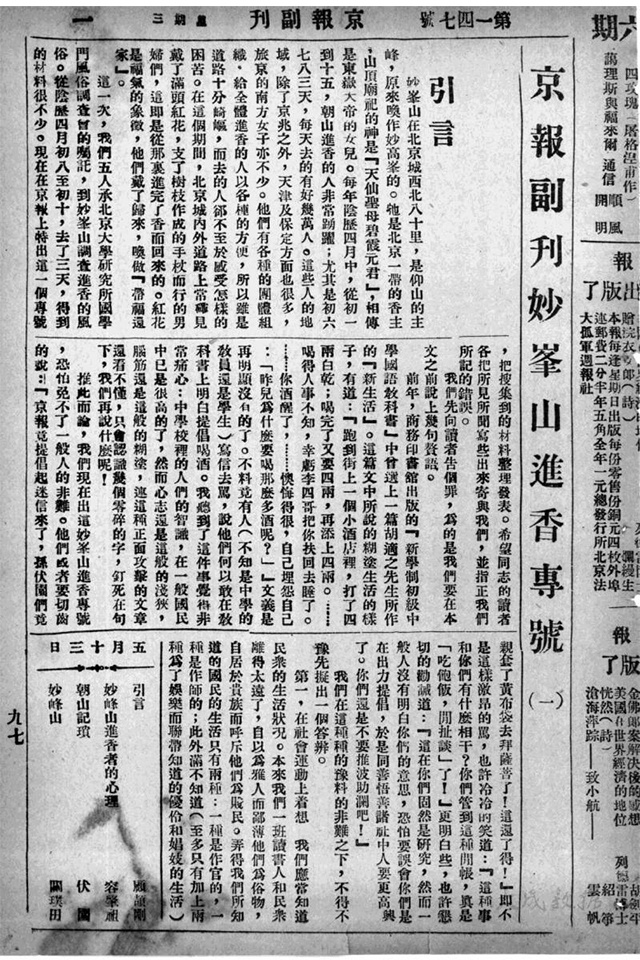 第一四七號
京報副刊
星期三
一
京報副刊妙峯山進香專號（一）
引言
妙峯山在北京城西北八十里，是仰山的主
峰，原來喚作妙高峯的。牠是北京一帶的香主
，山頂廟祀的神是『天仙聖母碧霞元君』，相傳
是東嶽大帝的女兒。每年陰歷四月中，從初一
到十五，朝山進香的人非常踴躍；尤其是初六
七八三天，每天去的有好幾萬人。這些人的地
域，除了京兆之外，天津及保定方面也很多，
旅京的南方女子亦不少。他們有各種的團體組
織，給全體進香的人以各種的方便，所以雖是
道路十分崎嶇，而去的人卻不至於感受怎樣的
困苦。在這個期間，北京城內外道路上常時見
戴了滿頭紅花，支了樹枝作成的手杖而行的男
婦們，這即是從那裏進完了香而回來的。紅花
是福氣的象徵，他們戴了歸來，喚做『帶福還
家』。
這一次，我們五人承北京大學研究所國學
門風俗調查會的囑託，到妙峯山調查進香的風
俗。從陰歷四月初八至初十，去了三天，得到
的材料很不少。現在在京報上特出這一個專號
，把搜集到的材料整理發表。希望同志的讀者
各把所見所聞寫些出來寄與我們，並指正我們
所記的錯誤。
我們先向讀者告個罪，為的是我們要在本
文之前說上幾句贅語。
前年，商務印書館出版的『新學制初級中
學國語教科書』中曾選上一篇胡適之先生所作
的『新生活』。這篇文中所說的糊塗生活的樣
子，有道：『跑到街上一個小酒店裡，打了四
兩白乾；喝完了又要四兩，再添上四兩。……
喝得人事不知，幸虧李四哥把你扶回去睡了。
……你酒醒了，……懊悔得很，自己埋怨自己
：「昨兒為什麼要喝那麼多酒呢？」』文義是
再明顯沒有的了。不料竟有人（不知是中學的
教員還是學生）寫信去罵，說他們何以敢在教
科書上明白提倡喝酒。我聽到了這件事覺得非
常痛心：中學校裡的人們的智識，在一般國民
中已是很高的了，然而心志還是這般的淺狹，
腦筋還是這般的糊塗，連這種正面攻擊的文章
還看不懂，只會認識幾個零碎的字，釘死在句
下，我們再說什麼呢！
推此而論，我們現在出這妙峯山進香專號
，恐怕免不了一般人的非難。他們或者要切齒
的說：『京報竟提倡起迷信來了，孫伏園們竟
親套了黃布袋去拜薩菩了！這還了得！』即不
是這樣激昂的罵，也許冷冷的笑道：『這種事
和你們有什麼相干？你們管到這種閒帳，真是
「吃飽飯，閒扯談」了！』更明白些，也許懇
切的勸誡道：『這在你們固然是研究，然而一
般人沒有明白你們的意思，恐怕要誤會你們是
在出力提倡，於是同善悟善諸社中人要更高興
了。你們還是不要推波助瀾吧！』
我們在這種種的豫料的非難之下，不得不
豫先擬出一個答辨。
第一，在社會運動上着想　我們應當知道
民衆的生活狀況。本來我們一班讀書人和民衆
離得太遠了，自以為雅人而鄙薄他們為俗物，
自居於貴族而呼斥他們為賤民。弄得我們所知
道的國民的生活只有兩種：一種是作官的，一
種是作師的；此外滿不知道（至多只有加上兩
種為了娛樂而聯帶知道的優伶和娼妓的生活）
五月十三日
引言　顧頡剛
妙峰山進香者的心理　容肇祖
朝山記瑣　伏園
妙峰山　關璞田
九七
六期
四玫瑰（屠格涅前作）　順風
萬理斯與福來爾　通信　開明
報
出版了
本報每逢星期日出版每份零售份銅元四枚外埠
連郵費二分半年五角全年一元總發行所北京法
大孤軍週報社
報
版了
金佛郎案解決後的感想
美國在世界經濟的地位
恍然（詩）
滄海萍踪——致小航——　雲帆